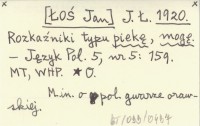 [Łoś Jan] J.Ł. 1920.
Rozkaźniki typu piekę, mogę.
– Język Pol. 5, nr 5: 159.
MT, WHP. *O.
M.in. o pol. gwarze oraw-
skiej.